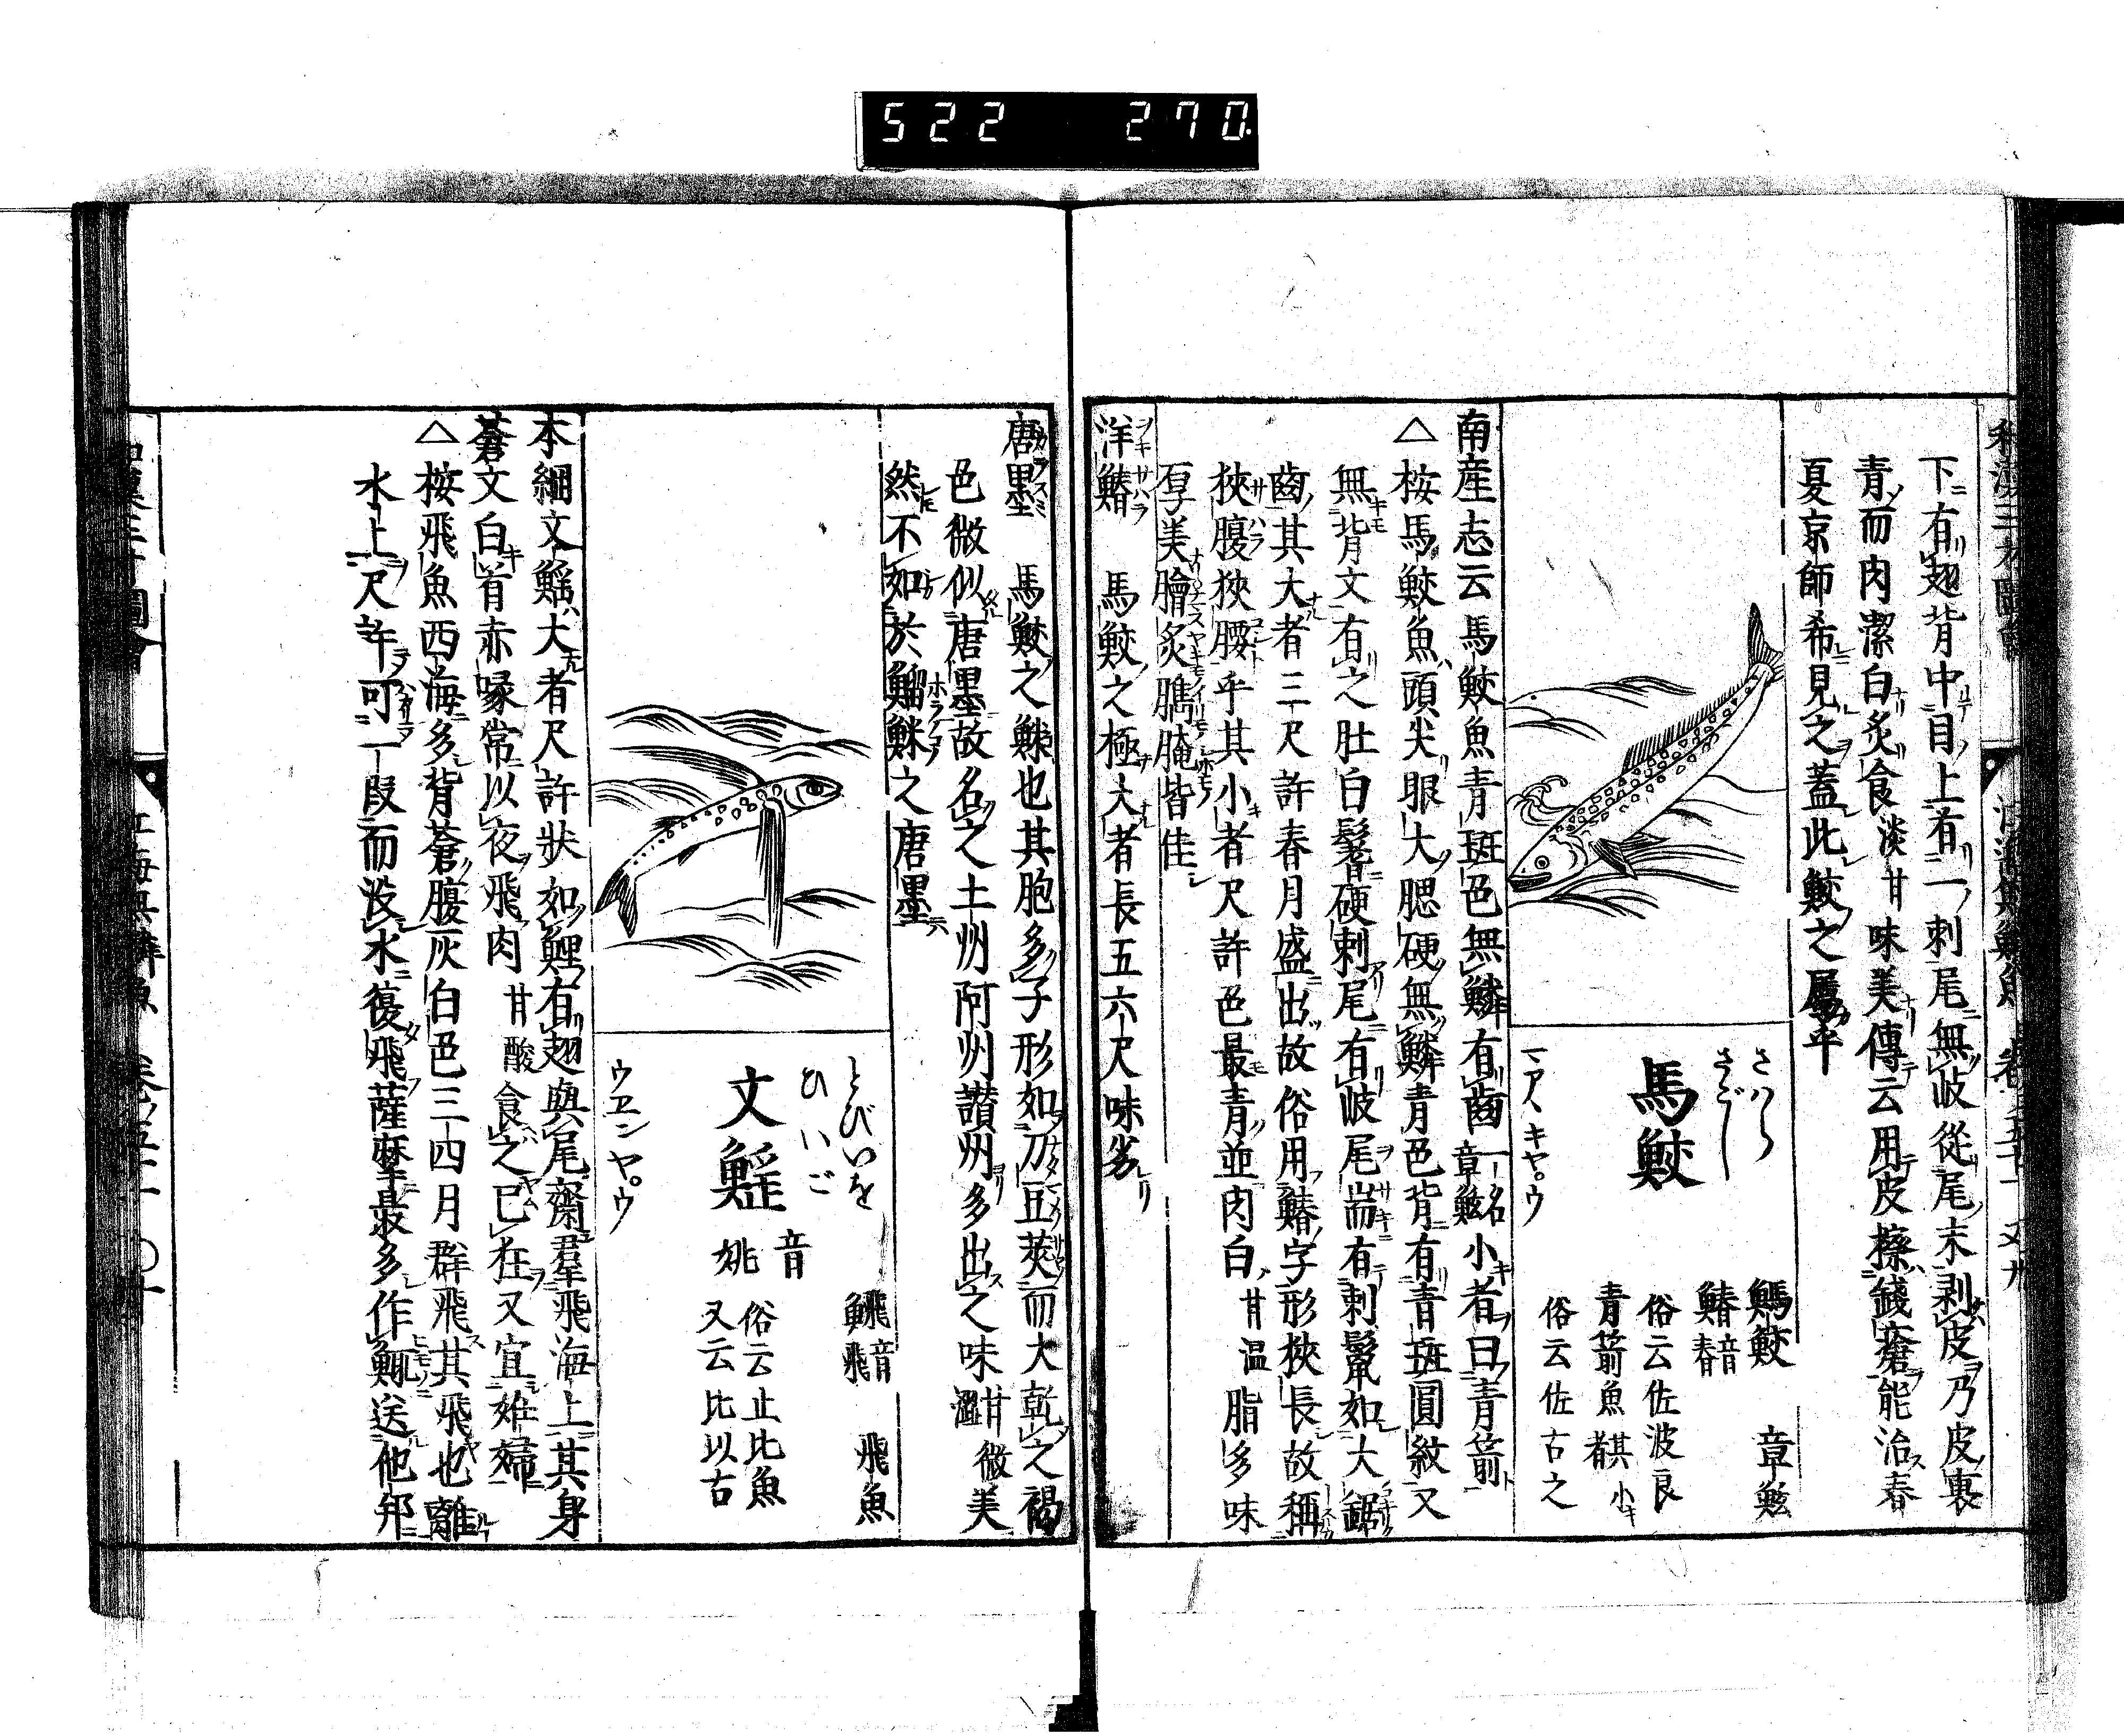 522 270.
下有翅背中目上有一刺尾無岐從尾末剥皮乃皮裏
青而肉潔白炙食淡甘味美傳云用皮擦錢瘡能治春
夏京師希見之蓋此鮫之屬乎
さはら
さごし
馬鮫
マアヽキヤ゜ウ
䲖鮫 章鮌
鰆 音春
俗云佐波良
青箭魚 其小者
俗云佐古之
南産志云馬鮫魚青斑色無鱗有齒 一名章鮌 小者曰青箭
△按馬鮫魚頭尖眼大腮硬無鱗青色背有青斑圓紋又
無背文有之肚白鬐硬刺尾有岐尾耑有刺鬣如大鋸
齒其大者三尺許春月盛出故俗用鰆字形狹長故稱
狹腹狹腰乎其小者尺許色最青並肉白 甘温 脂多味
厚美膾炙臇腌皆佳
洋鰆 馬鮫之極大者長五六尺味劣
唐墨 馬鮫之鯑也其胞多子形如刀豆莢而大乾之褐
色微似唐墨故名之土州阿州讃州多出之味 甘澀 微美
然不如於鰡鯑之唐墨
とびいを
ひいご
文鰩 音姚
ウエンヤ゜ウ
䱀 音飛 飛魚
俗云止比魚
又云比以古
本綱文鰩大者尺許狀如鯉有翅與尾齊羣飛海上其身
蒼文白首赤喙常以夜飛肉 甘酸 食之已狂又宜姙婦
△按飛魚西海多背蒼腹灰白色三四月群飛其飛也離
水上尺許可一段而没水復飛薩摩最多作鮿送他邦